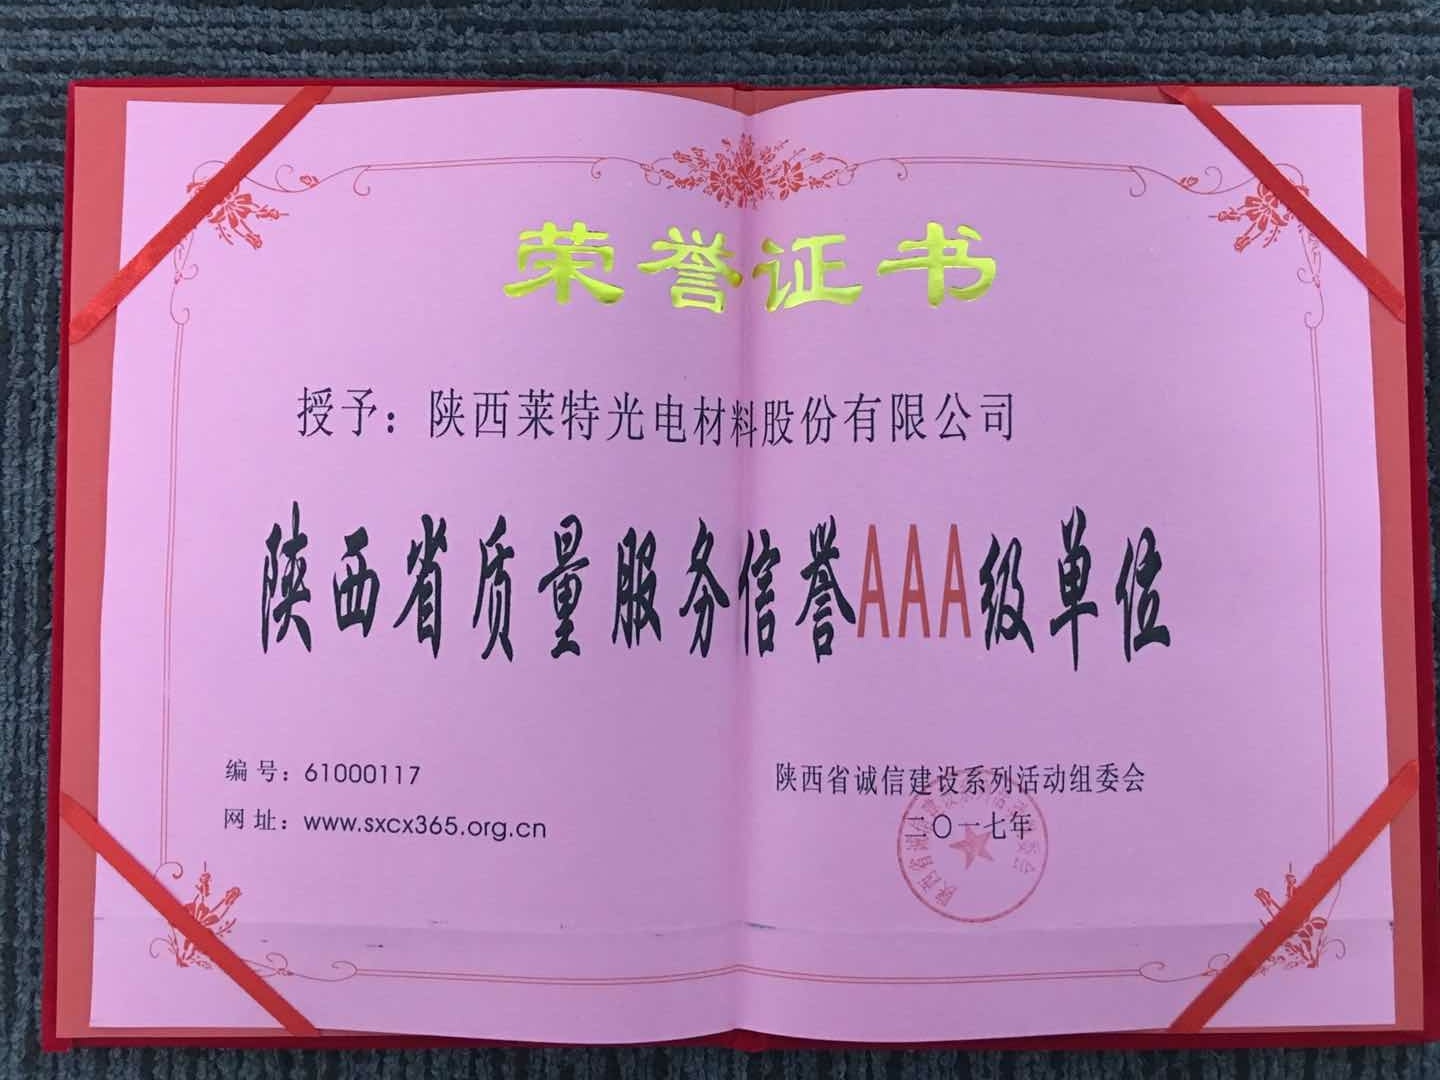 荣誉证书
授予：陕西莱特光电材料股份有限公司
陕西省质量服务信誉AAA级单位
编号：61000117
网址：www.sxcx365.org.cn
陕西省诚信建设系列活动组委会
二〇一七年